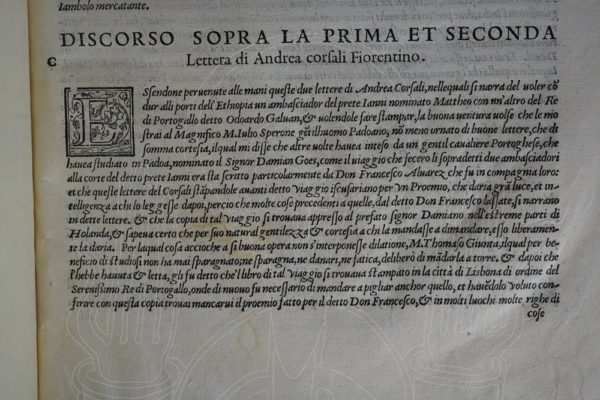 Iambolo mercatante.
DISCORSO SOPRA LA PRIMA ET SECONDA
C
Lettera di Andrea corsali Fiorentino.
ESsendone peruenute alle mani queste due lettere di Andrea Corsali, nelle quali si narra del voler cõ
dur alli porti dell'Ethiopia un ambasciador del prete Ianni nominato Mattheo con un'altro del Re
di Portogallo detto Odoardo Galuan, & uolendole fare stampar, la buona ventura volse che le mo
strai al Magnifico M. Iulio Sperone gẽtilhuomo Padoano, nõ meno ornato di buone lettere, che di
somma cortesia, il qual mi disse che altre volte hauea inteso da un gentil caualiere Portoghese, che
hauea studiato in Padoa, nominato il Signor Damian Goes, come il viaggio che fecero li sopradetti due ambasciadori
alla corte del detto prete Ianni era sta scritto particolarmente da Don Francesco Aluarez che fu in compagnia loro:
et che queste lettere del Corsali stãpandole auanti detto Viaggio iscusariano per un Proemio, che daria grã luce, et in-
telligenza a chi lo leggesse dapoi, percio che molte cose precedenti a quelle, dal detto Don Francesco lassate, si narrano
in dette lettere. & che la copia di tal Viaggio si trouaua appresso al prefato signor Damiano nell'estreme parti di
Holanda, & sapeua certo che per suo natural gentilezza & cortesia a chi la mandasse a dimandare, esso liberamen-
te la daria. Per la qual cosa accioche a si buona opera non s'interponesse dilatione, M. Thomaso Giunta, il qual per be-
neficio di studiosi non ha mai sparagnato, ne sparagna, ne danari, ne fatica, deliberò di mãdarla a torre. & dapoi che
l'hebbe hauuta & letta, gli fu detto che'l libro di tal Viaggio si trouaua stampato in la città di Lisbona di ordine del
Serenissimo Re di Portogallo, onde di nuouo fu necessario di mandare a pigliar anchor quello, et hauẽdolo voluto con-
ferire con questa copia trouai mancarui il proemio fatto per il detto Don Francesco, & in molti luochi molte righe di
cose